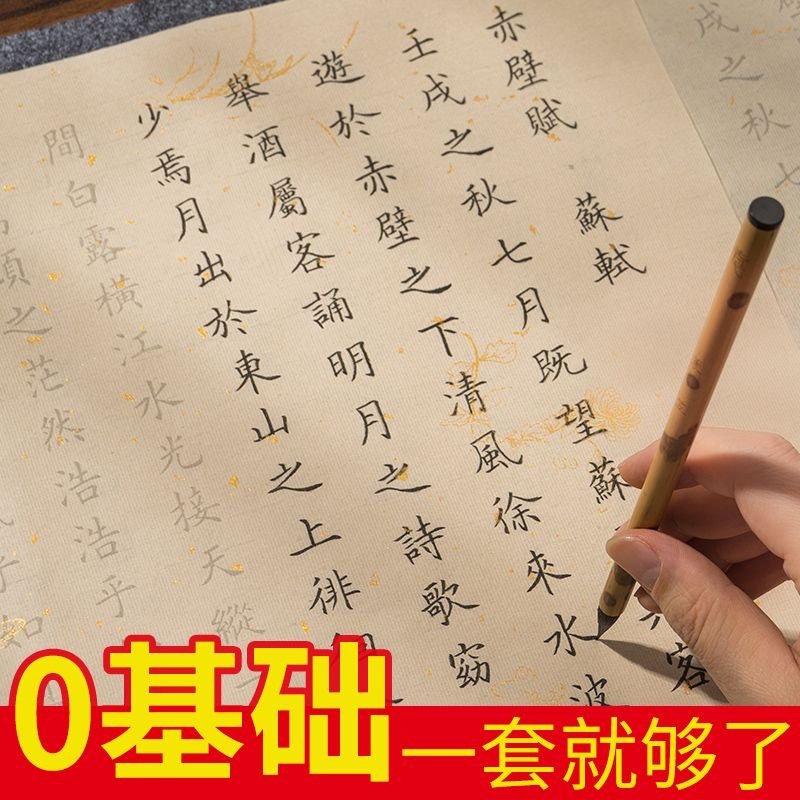 戌之秋七
赤壁賦 蘇軾
壬戌之秋七月既望蘇 客
遊於赤壁之下清風徐來水波
舉酒屬客誦明月之詩歌窈
少焉月出於東山之上徘
間白露橫江水光接天縱一
頃之茫然浩浩乎如
0基础
一套就够了